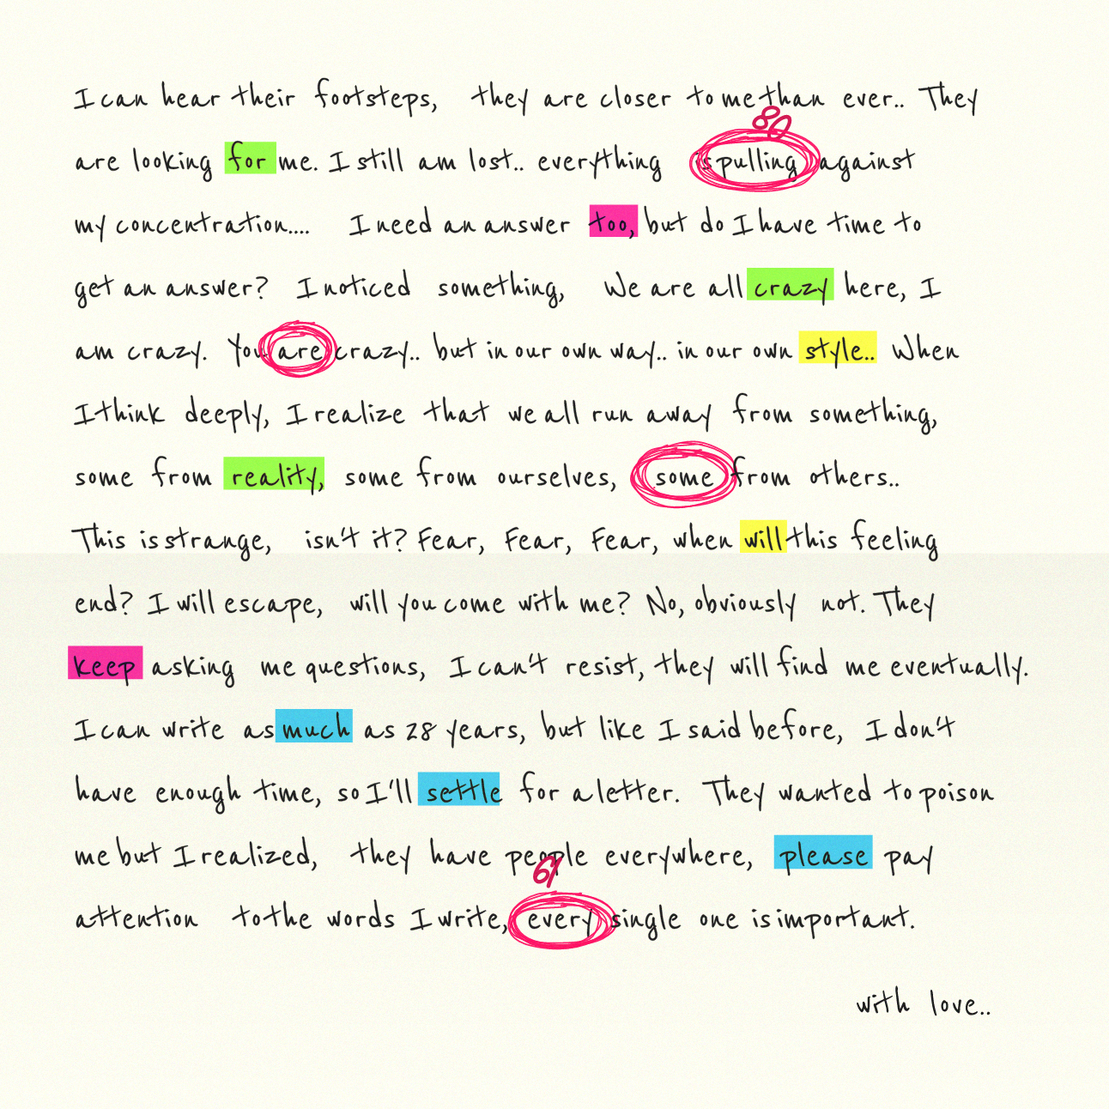 I can hear their footsteps, they are closer to me than ever.. They
80
are looking for me. I still am lost.. everything is pulling against
my concentration.... I need an answer too, but do I have time to
get an answer? I noticed something, We are all crazy here, I
am crazy. You are crazy.. but in our own way.. in our own style.. When
I think deeply, I realize that we all run away from something,
some from reality, some from ourselves, some from others..
This is strange, isn't it? Fear, Fear, Fear, when will this feeling
end? I will escape, will you come with me? No, obviously not. They
keep asking me questions, I can't resist, they will find me eventually.
I can write as much as 28 years, but like I said before, I don't
have enough time, so I'll settle for a letter. They wanted to poison
me but I realized, they have people everywhere, please pay
attention to the words I write, every single one is important.
with love..